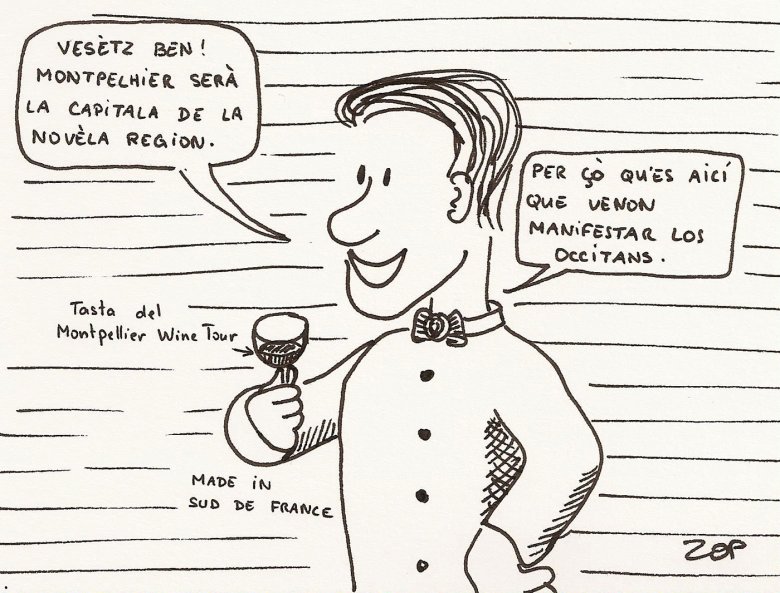 VESÈTZ BEN!
MONTPELHIER SERÀ
LA CAPITALA DE LA
NOVÈLA REGION.
PER ÇÒ QU'ES AICÍ
QUE VENON
MANIFESTAR LOS
OCCITANS.
Tasta del
Montpellier Wine Tour
MADE IN
SUD DE FRANCE
ZOP